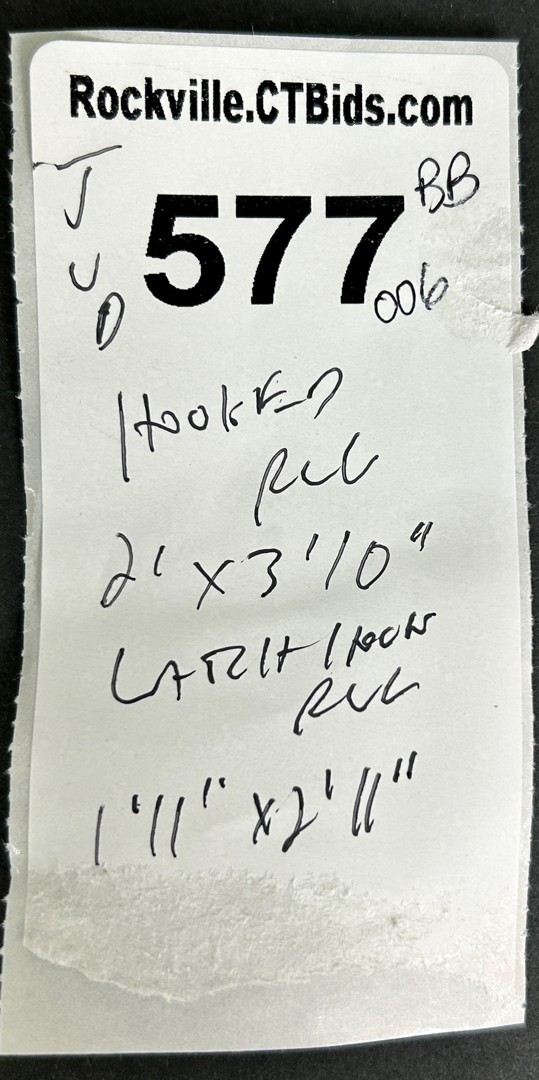 Rockville.CTBids.com
JUD
577
BB
006
HOOKED
RUG
2' x 3'10"
LATCH HOOK
RUG
1'11" x 2'11"